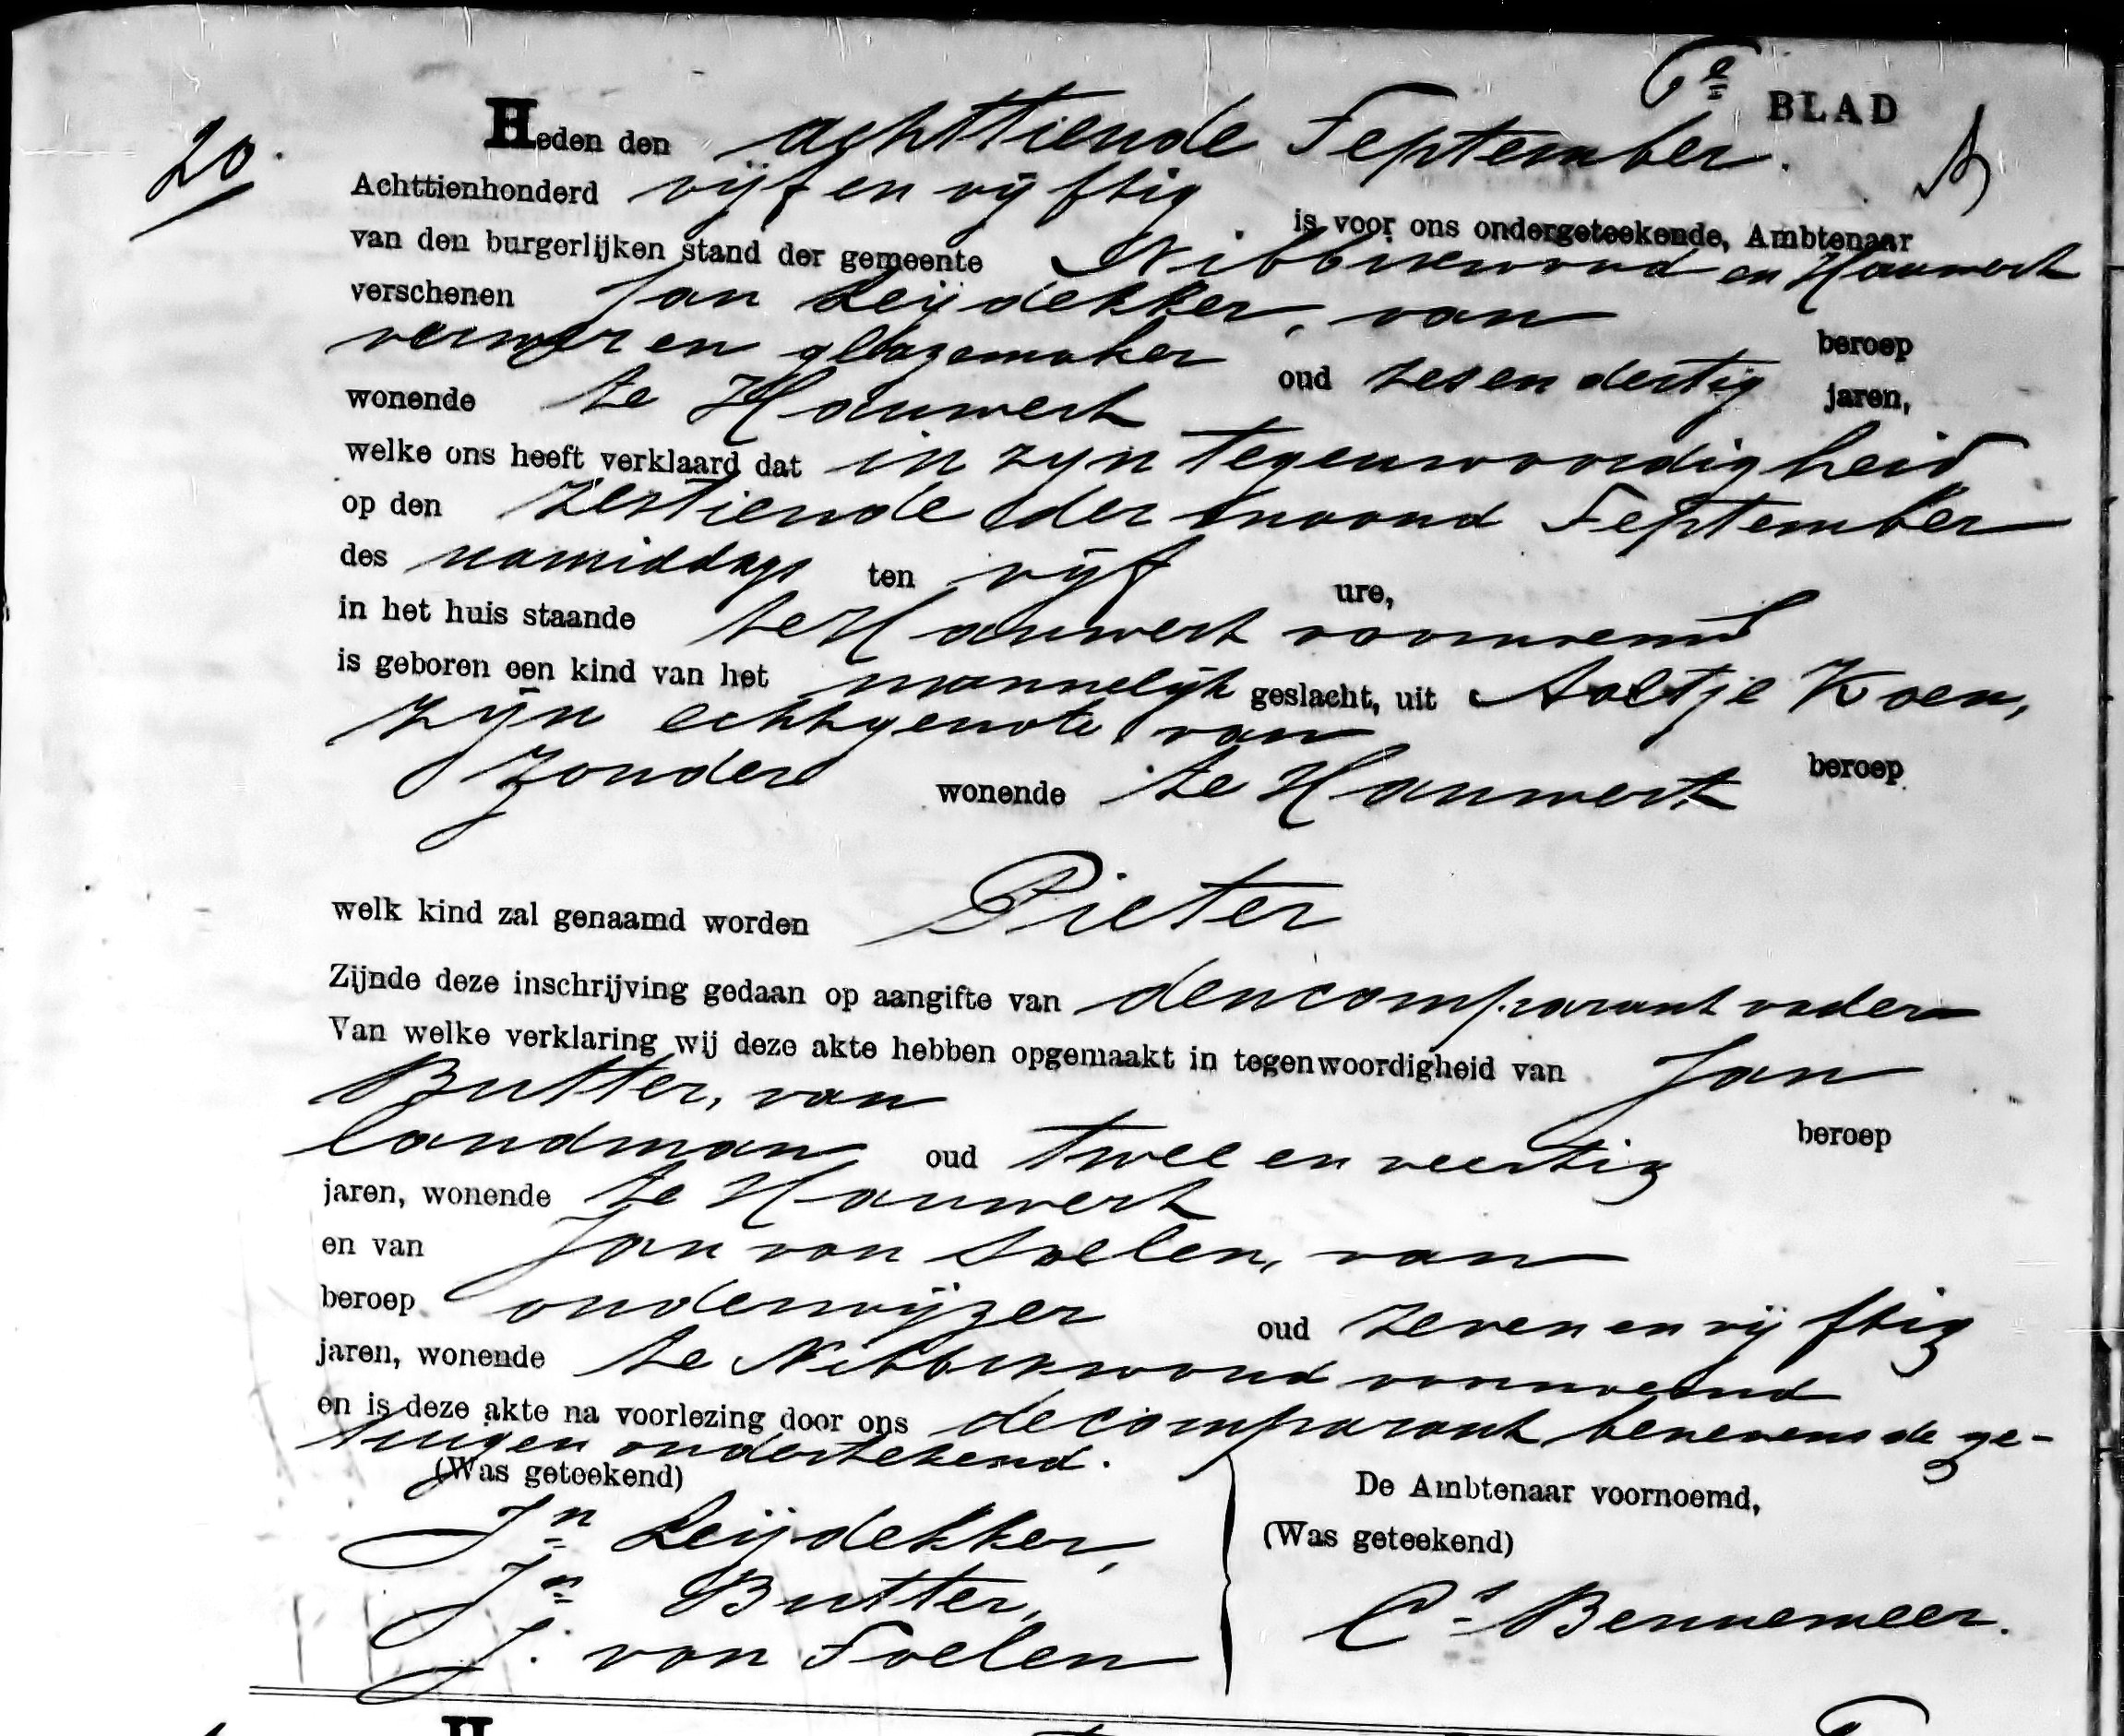 6e BLAD
20.
Heden den achttiende September.
Achttienhonderd vijf en vijftig is voor ons ondergeteekende, Ambtenaar
van den burgerlijken stand der gemeente Nibbixwoud en Hauwert
verschenen Jan Leijdekker, van beroep
verwer en glazemaker oud zes en dertig jaren,
wonende te Hauwert
welke ons heeft verklaard dat in zyn tegenwoordigheid
op den zestiende der maand September
des namiddags ten vijf ure,
in het huis staande te Hauwert voornoemd
is geboren een kind van het mannelijk geslacht, uit Aaltje Koen,
zijn echtgenote van beroep
zonder wonende te Hauwert
welk kind zal genaamd worden Pieter
Zijnde deze inschrijving gedaan op aangifte van den comparant vader
Van welke verklaring wij deze akte hebben opgemaakt in tegenwoordigheid van Jan
Butter, van beroep
landman oud twee en veertig
jaren, wonende te Hauwert
en van Jan van Soelen, van
beroep onderwijzer oud zeven en vijftig
jaren, wonende te Nibbixwoud voornoemd
en is deze akte na voorlezing door ons de comparant benevens de ge-
tuigen ondertekend.
(Was geteekend)
De Ambtenaar voornoemd,
(Was geteekend)
Jn Leijdekker,
Jn Butter,
J. van Soelen
Cs Bennemeer.